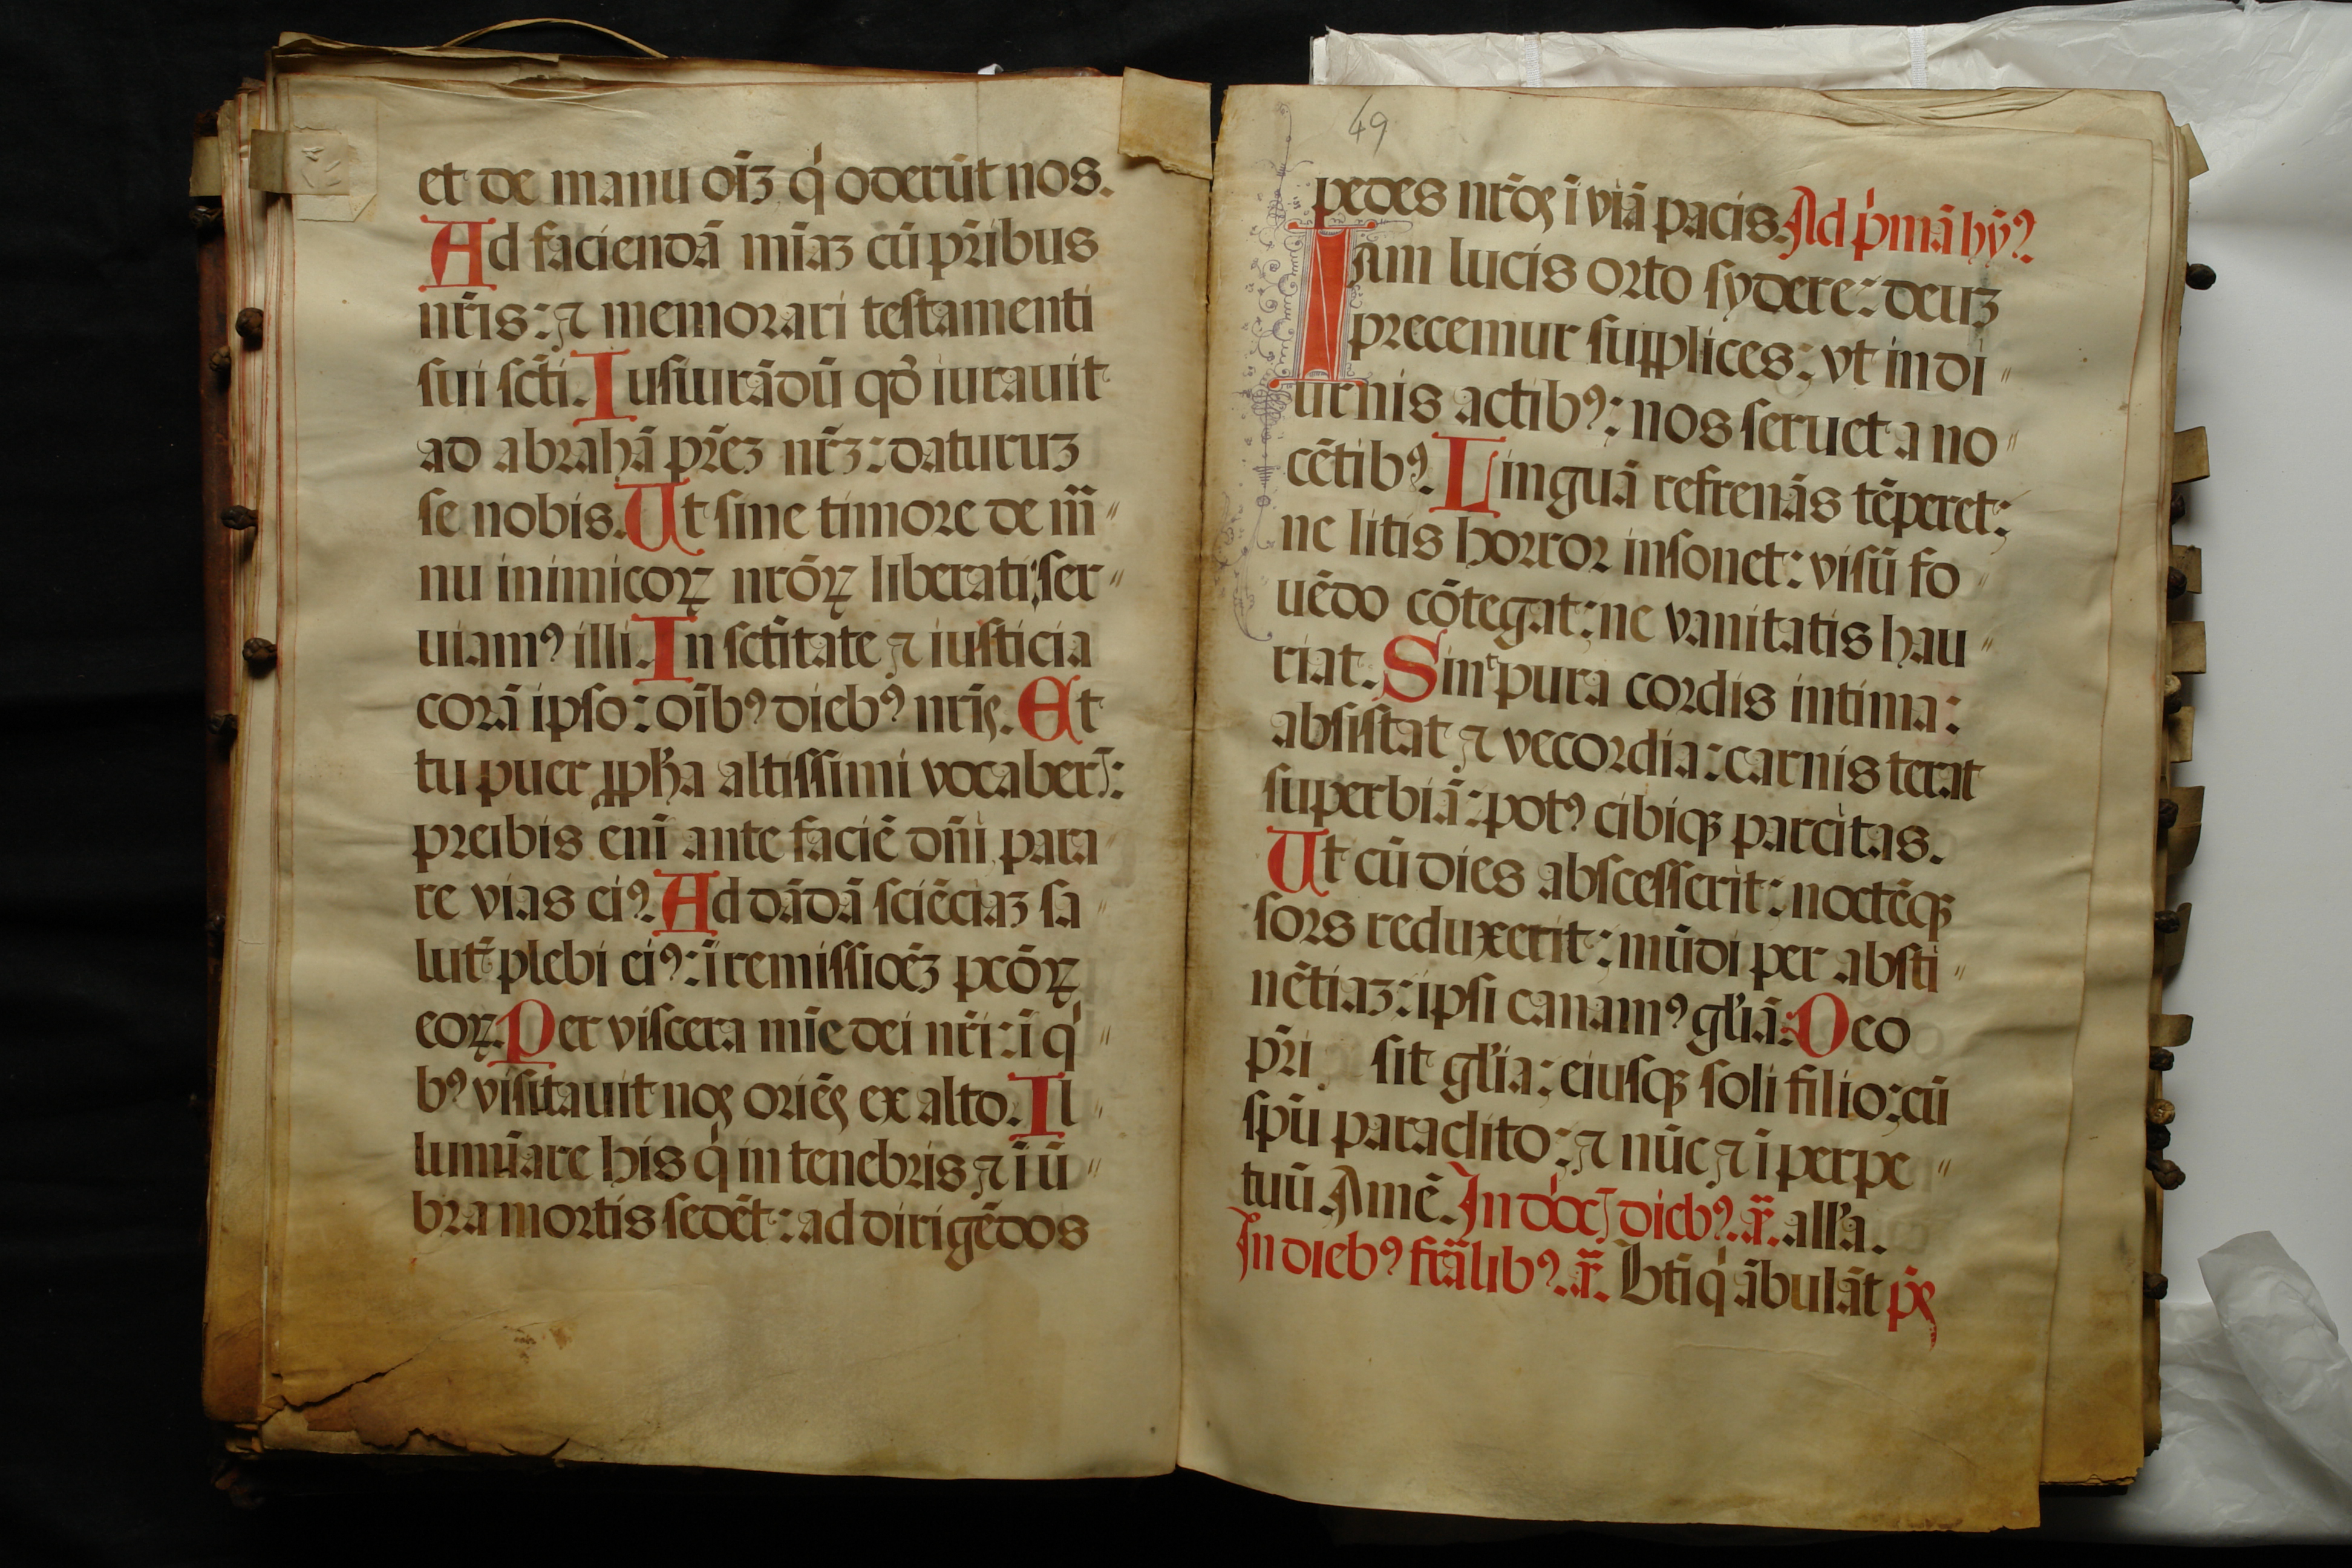 et de manu oīꝫ q̇ oderūt nos.
Ad faciendā mīaꝫ cū pr̄ibus
nr̄is: ⁊ memorari testamenti
sui scti. Iusiurādū qđ iurauit
ad abrahā pr̄eꝫ nr̄ꝫ: daturuꝫ
se nobis. Ut sine timore de m̄
nu inimicoꝝ nr̄oꝝ liberati: ser
uiamꝰ illi. In sctitate ⁊ iusticia
corā ipso: oībꝰ diebꝰ nris. Et
tu puer ꝓpha altissimi vocaber̄:
preibis enī ante faciē dn̄i para
re vias eiꝰ. Ad dādā sciēciaꝫ sa
lut̄ plebi eiꝰ: ī remissioēꝫ pcōꝝ
eoꝝ. Per viscera mīe dei nr̄i: ī q̇
bꝰ visitauit nos oriēs ex alto. Il
lumīare his q̇ in tenebris ⁊ ī ū
bra mortis sedēt: ad dirigēdos
49
pedes nr̄os ī viā pacis. Ad ṗmā hȳꝰ.
Iam lucis orto sydere: deuꝫ
precemur supplices: vt in di
urnis actibꝰ: nos seruet a no
cētibꝰ. Linguā refrenās tēperet:
ne litis horror insonet: visū fo
uēdo cōtegat: ne vanitatis hau
riat. Sint pura cordis intima:
absistat ⁊ vecordia: carnis terat
superbiā: potꝰ cibiqꝫ parcitas.
Ut cū dies abscesserit: noctēqꝫ
sors reduxerit: mūdi per absti
nētiaꝫ: ipsi canamꝰ gl'iā. Deo
pr̄i sit gl'ia: eiusqꝫ soli filio: cū
spū paraclito: ⁊ nūc ⁊ ī perpe
tuū Amē. In diebꝰ. ā. all'a.
In diebꝰ fr̄alibꝰ. ā. Bt̄i q̇ ābulāt p̄s